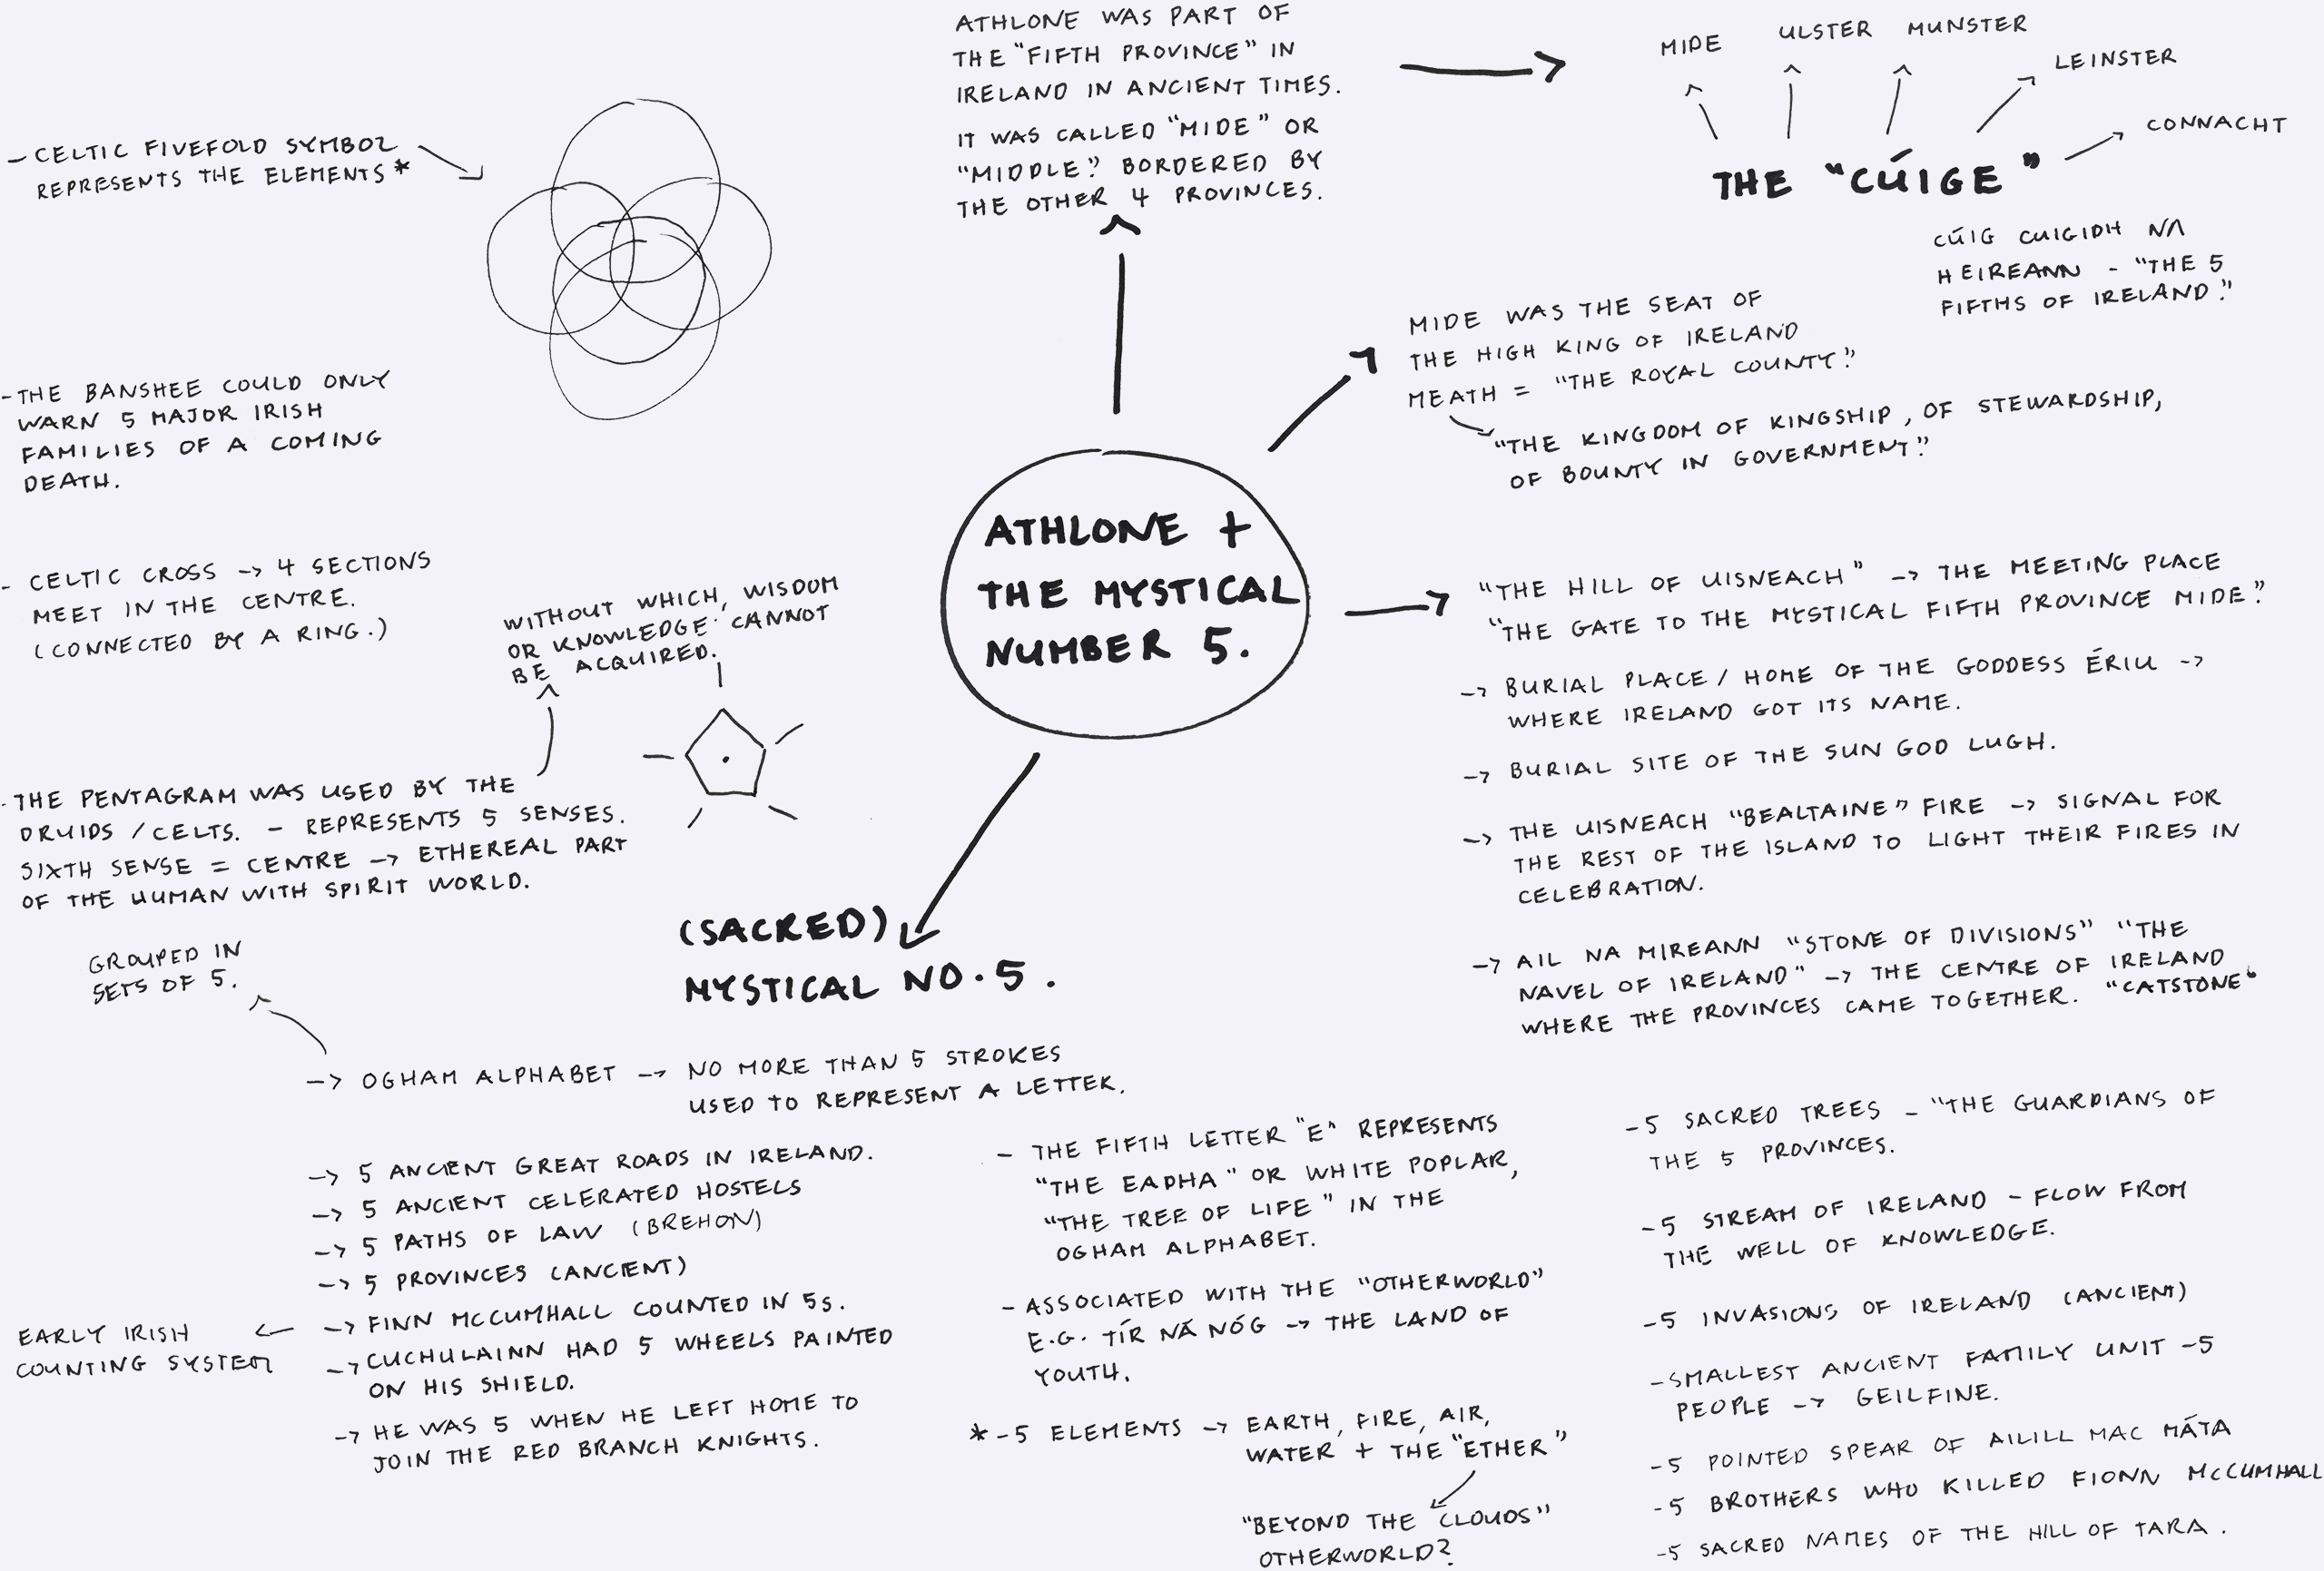 ATHLONE WAS PART OF
THE "FIFTH PROVINCE" IN
IRELAND IN ANCIENT TIMES.
IT WAS CALLED "MIDE" OR
"MIDDLE". BORDERED BY
THE OTHER 4 PROVINCES.
MIDE
ULSTER
MUNSTER
LEINSTER
CONNACHT
THE "CÚIGE"
CÚIG CUIGIDH NA
HEIREANN - "THE 5
FIFTHS OF IRELAND."
- CELTIC FIVEFOLD SYMBOL
REPRESENTS THE ELEMENTS *
- THE BANSHEE COULD ONLY
WARN 5 MAJOR IRISH
FAMILIES OF A COMING
DEATH.
- CELTIC CROSS -> 4 SECTIONS
MEET IN THE CENTRE.
(CONNECTED BY A RING.)
WITHOUT WHICH, WISDOM
OR KNOWLEDGE CANNOT
BE ACQUIRED.
- THE PENTAGRAM WAS USED BY THE
DRUIDS / CELTS. - REPRESENTS 5 SENSES.
SIXTH SENSE = CENTRE -> ETHEREAL PART
OF THE HUMAN WITH SPIRIT WORLD.
ATHLONE +
THE MYSTICAL
NUMBER 5.
MIDE WAS THE SEAT OF
THE HIGH KING OF IRELAND
MEATH = "THE ROYAL COUNTY."
"THE KINGDOM OF KINGSHIP, OF STEWARDSHIP,
OF BOUNTY IN GOVERNMENT."
"THE HILL OF UISNEACH" -> THE MEETING PLACE
"THE GATE TO THE MYSTICAL FIFTH PROVINCE MIDE."
-> BURIAL PLACE / HOME OF THE GODDESS ÉRIU ->
WHERE IRELAND GOT ITS NAME.
-> BURIAL SITE OF THE SUN GOD LUGH.
-> THE UISNEACH "BEALTAINE" FIRE -> SIGNAL FOR
THE REST OF THE ISLAND TO LIGHT THEIR FIRES IN
CELEBRATION.
-> AIL NA MIREANN "STONE OF DIVISIONS" "THE
NAVEL OF IRELAND" -> THE CENTRE OF IRELAND
WHERE THE PROVINCES CAME TOGETHER. "CATSTONE"
(SACRED)
MYSTICAL NO. 5.
GROUPED IN
SETS OF 5.
-> OGHAM ALPHABET -> NO MORE THAN 5 STROKES
USED TO REPRESENT A LETTER.
-> 5 ANCIENT GREAT ROADS IN IRELAND.
-> 5 ANCIENT CELERATED HOSTELS
-> 5 PATHS OF LAW (BREHON)
-> 5 PROVINCES (ANCIENT)
-> FINN MCCUMHALL COUNTED IN 5s.
EARLY IRISH
COUNTING SYSTEM
-> CUCHULAINN HAD 5 WHEELS PAINTED
ON HIS SHIELD.
-> HE WAS 5 WHEN HE LEFT HOME TO
JOIN THE RED BRANCH KNIGHTS.
- THE FIFTH LETTER "E" REPRESENTS
"THE EADHA" OR WHITE POPLAR,
"THE TREE OF LIFE" IN THE
OGHAM ALPHABET.
- ASSOCIATED WITH THE "OTHERWORLD"
E.G. TÍR NÁ NÓG -> THE LAND OF
YOUTH.
* - 5 ELEMENTS -> EARTH, FIRE, AIR,
WATER + THE "ETHER"
"BEYOND THE CLOUDS"
OTHERWORLD?
- 5 SACRED TREES - "THE GUARDIANS OF
THE 5 PROVINCES.
- 5 STREAM OF IRELAND - FLOW FROM
THE WELL OF KNOWLEDGE.
- 5 INVASIONS OF IRELAND (ANCIENT)
- SMALLEST ANCIENT FAMILY UNIT - 5
PEOPLE -> GEILFINE.
- 5 POINTED SPEAR OF AILILL MAC MÁTA
- 5 BROTHERS WHO KILLED FIONN MCCUMHALL
- 5 SACRED NAMES OF THE HILL OF TARA.